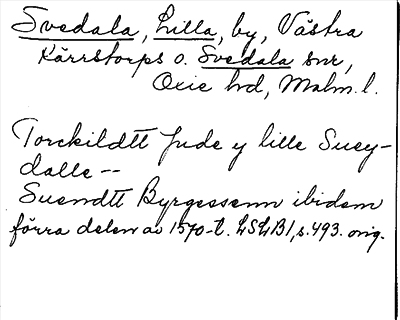 Svedala, Lilla, by, Västra
Kärrstorps o. Svedala snr,
Oxie hd, Malm. l.
Torckildtt Jude y lille Suey-
dalle --
Suendtt Byrgessenn ibidem
förra delen av 1570-t. LSLB1, s. 493. orig.